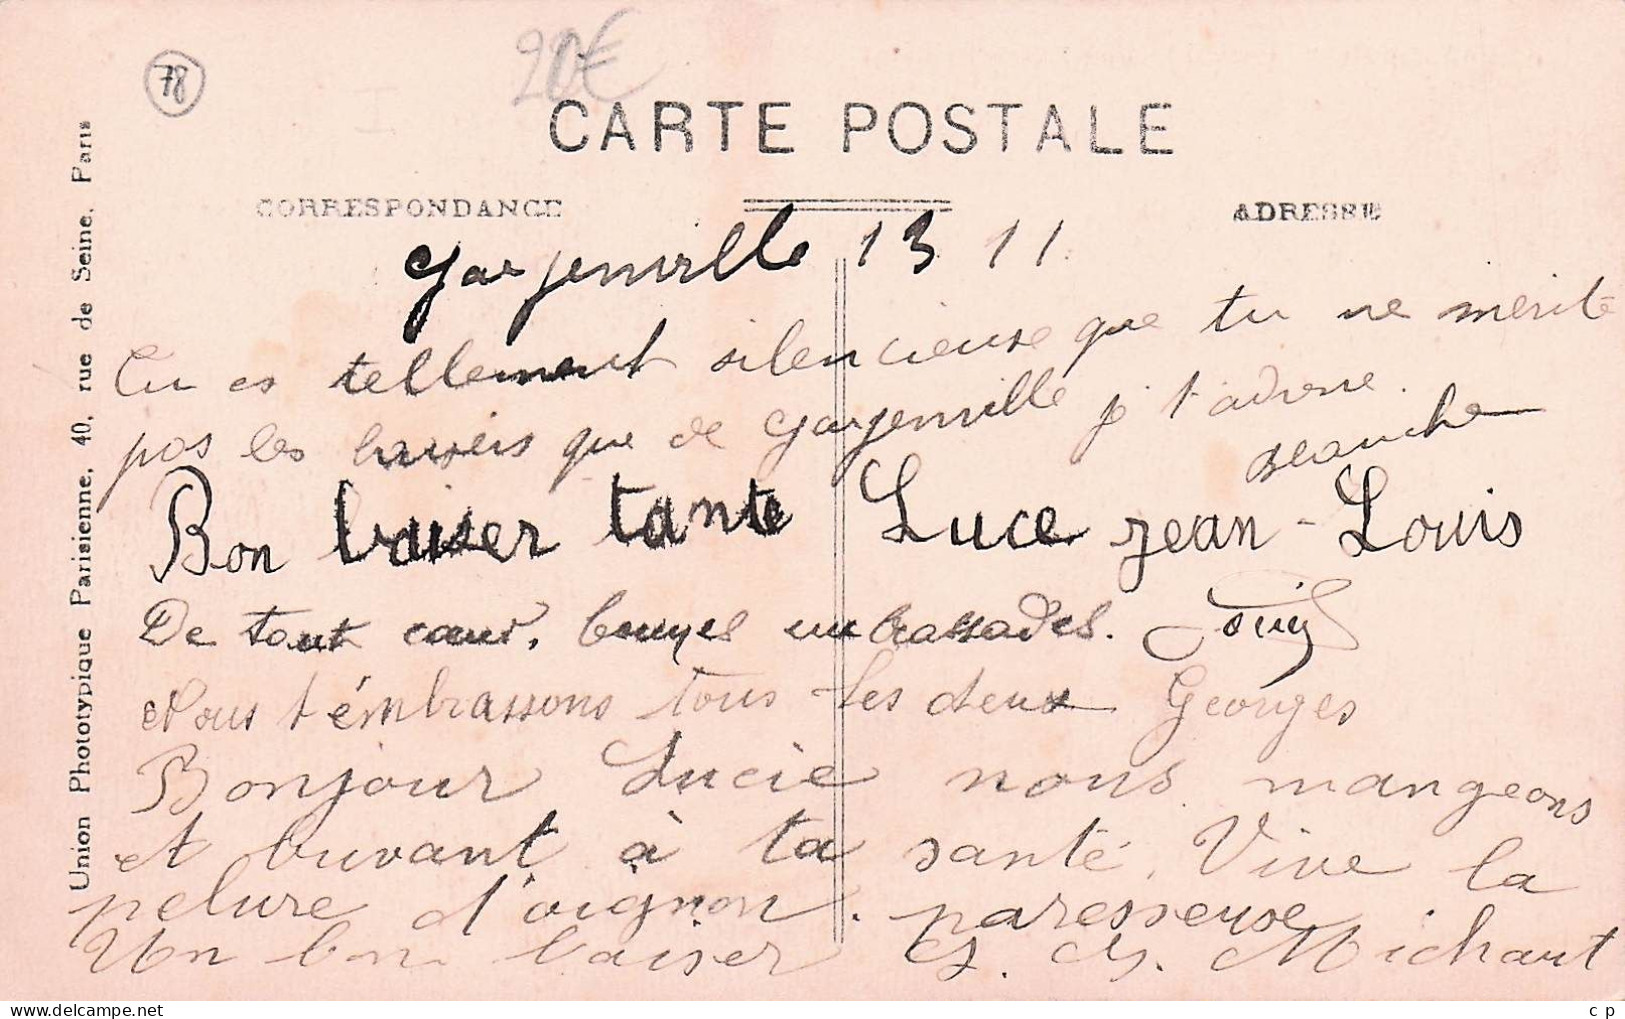 78
20€
CARTE POSTALE
CORRESPONDANCE
ADRESSE
Union Phototypique Parisienne, 40, rue de Seine, Paris
Gargenville 13 11
Tu es tellement silencieuse que tu ne mérite
pas les baisers que de Gargenville je t'adresse.
Blanche
Bon baiser tante Luce Jean-Louis
De tout cœur, bonnes embrassades.
Nous t'émbrassons tous les deux Georges
Bonjour Lucie nous mangeons
et buvant à ta santé. Vive la
pelure d'oignon. paresseuse
Un bon baiser G. G. Michaut
c p